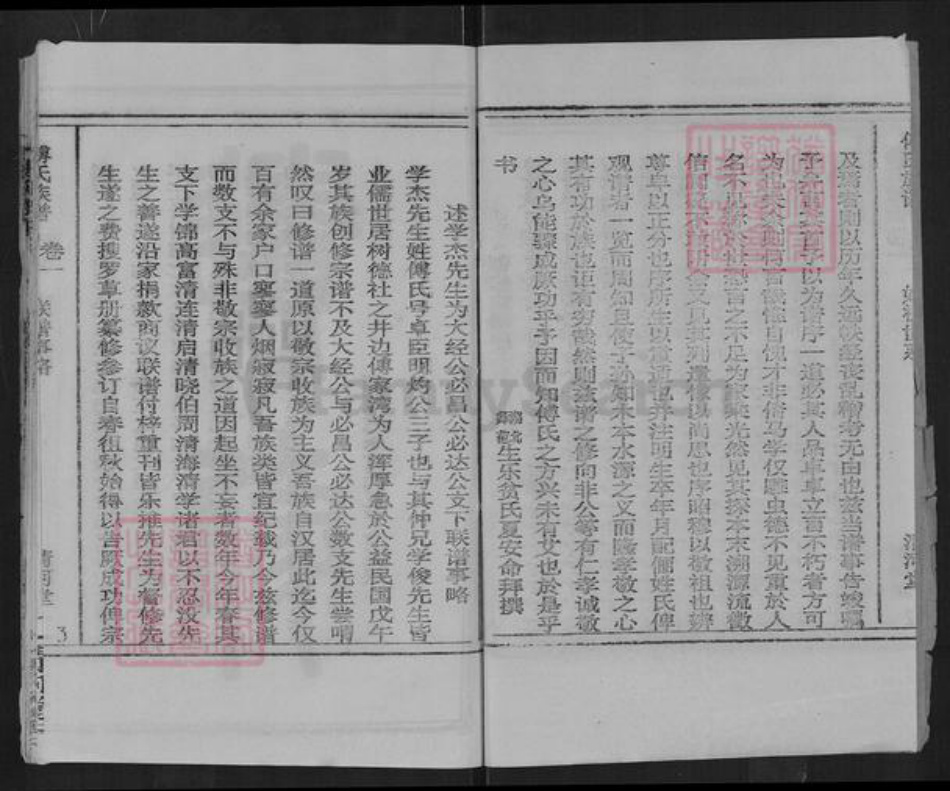 及焉者则以历年久远帙经丧乱稽考无由也兹当谱事告竣嘱
予 以为谱序一道必其人品卓卓立言不朽者方可
为 自愧才非倚马学仅雕虫德不见重於人
名不 言之不足为家乘光然见其探本末溯源流徵
信 其列遗像以尚恩也序昭穆以敬祖也辨
尊卑以正分也序所生以重适也并注明生卒年月配俪姓氏俾
观谱者一览而周知且使子孙知木本水源之义而随孝敬之心
其有功於族也讵有穷哉然则兹谱之修向非公等有仁孝诚敬
之心乌能骤成厥功乎予因而知傅氏之方兴未有艾也於是乎
书
生乐贫氏夏安命拜撰
述学杰先生为大经公必昌公必达公文下联谱事略
学杰先生姓傅氏号卓臣明灼公三子也与其仲兄学俊先生皆
业儒世居树德社之井边傅家湾为人浑厚急於公益民国戊午
岁其族创修宗谱不及大经公与必昌公必达公数支先生尝喟
然叹曰修谱一道原以敬宗收族为主义吾族自汉居此迄今仅
百有余家户口寥寥人烟寂寂凡吾族类皆宜纪载乃今兹修谱
而数支不与殊非敬宗收族之道因起坐不妄者数年今年春其
支下学锦高富清连清启清晓伯周清海清学诸君以不忍没先
生之善遂沿家捐款商议联谱付梓重刊皆乐推先生为督修先
生遂之费搜罗草册纂修参订自春徂秋始得以告厥成功俾宗
傅氏族谱
卷一
联谱事略
清河堂
3